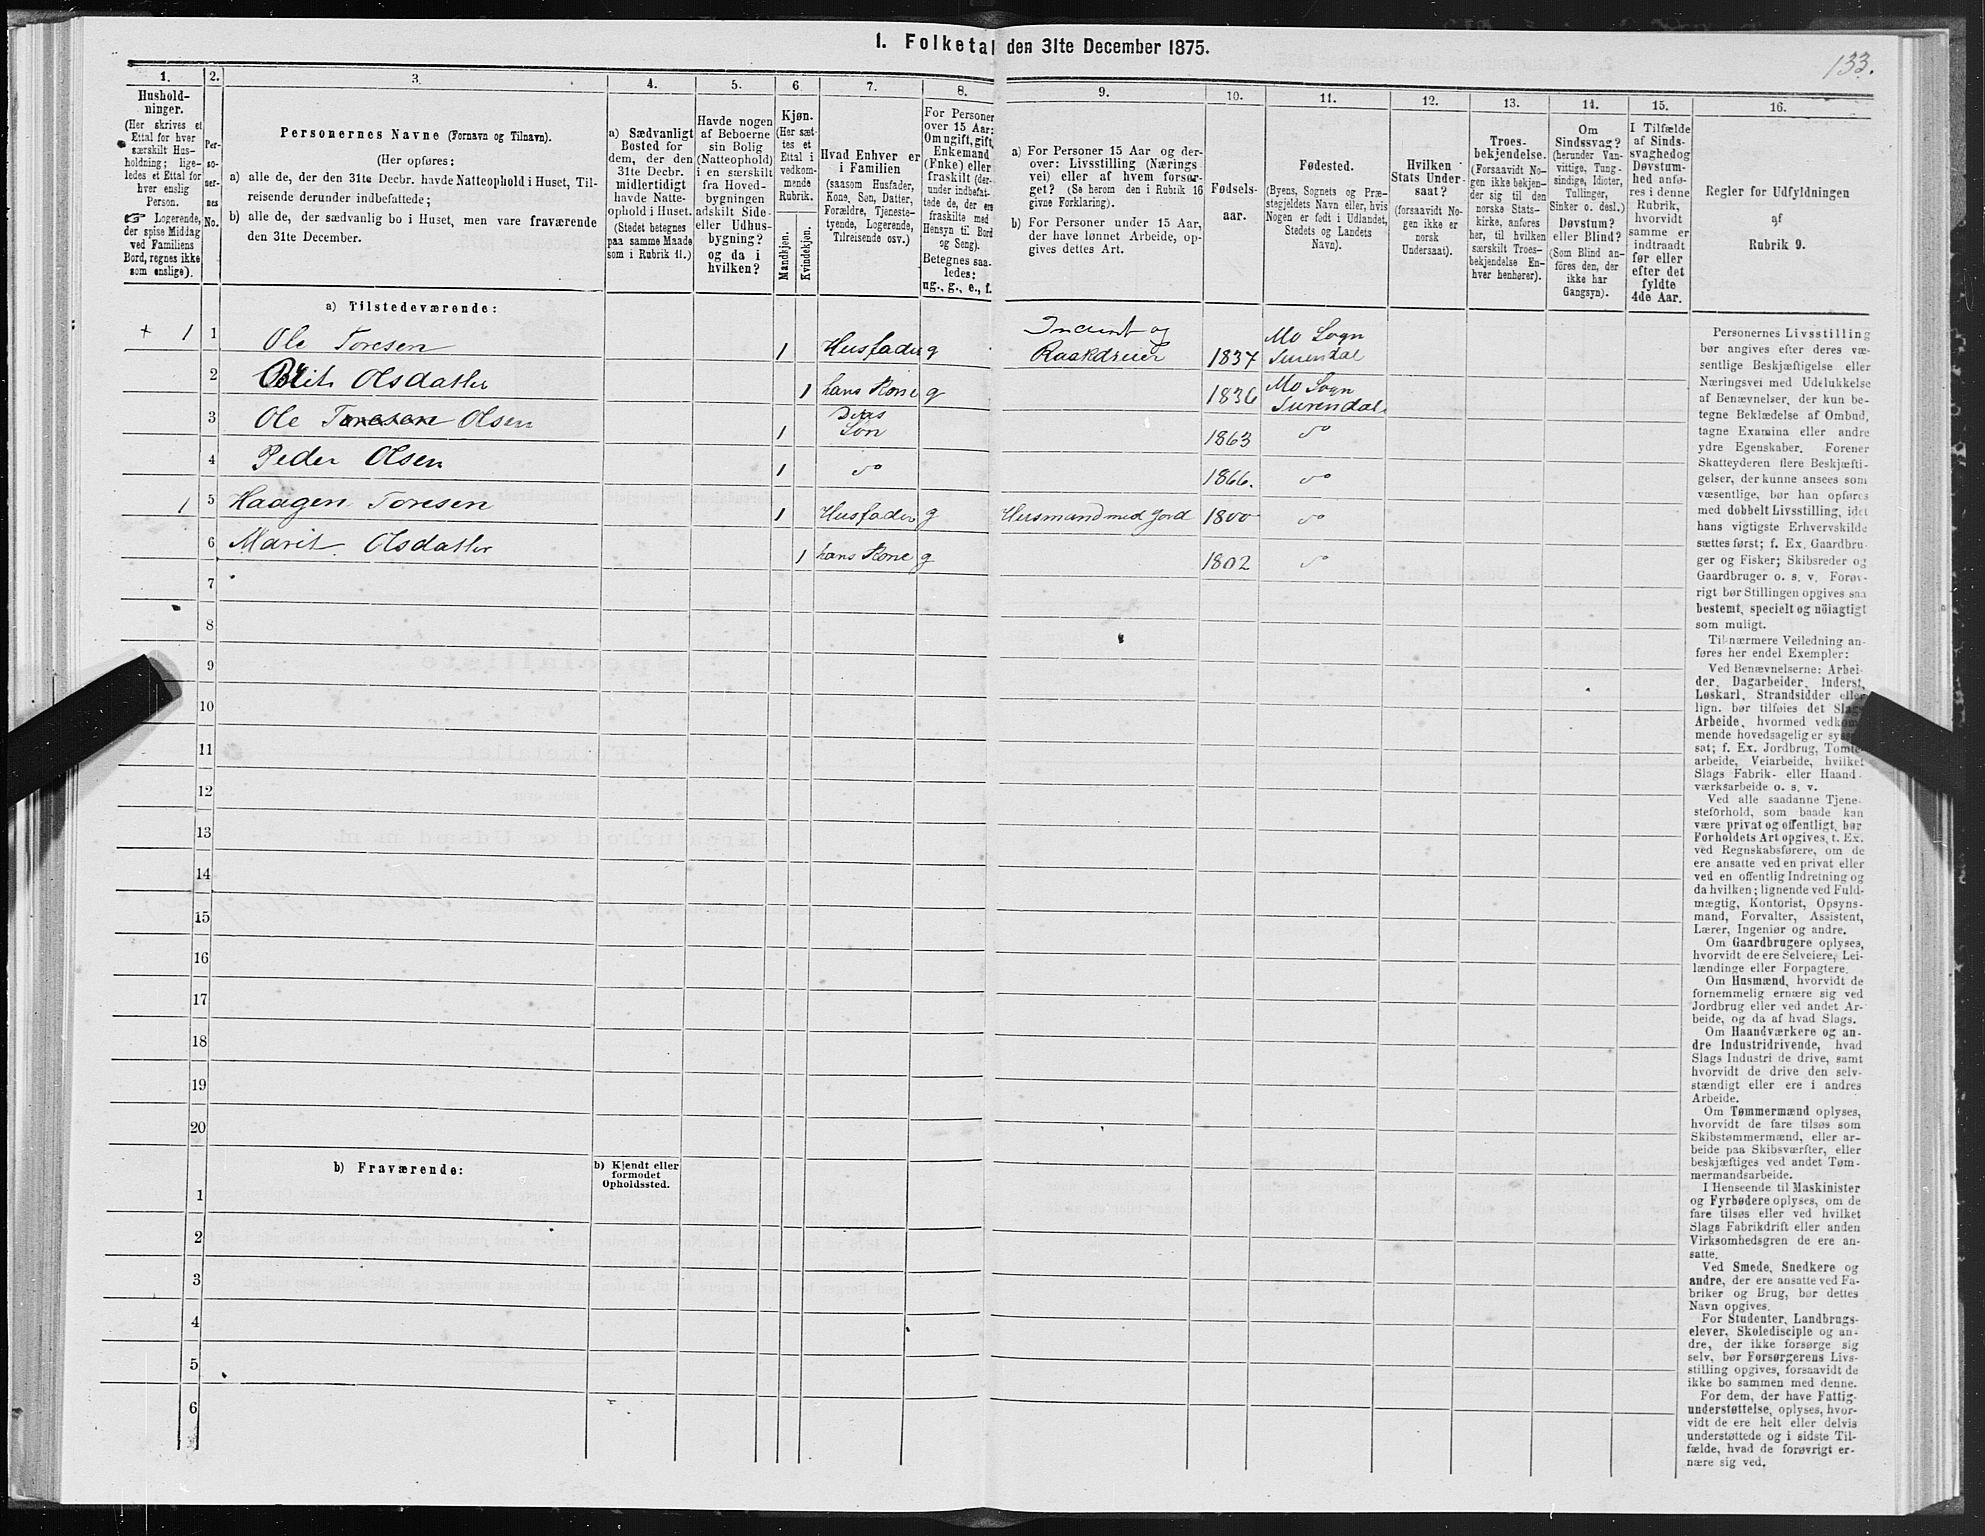 1. Folketal den 31te December 1875.
133.
1.
Hushold-
ninger.
(Her skrives et
Ettal for hver
særskilt Hus-
holdning; lige-
ledes et Ettal for
hver enslig
Person.
☞ Logerende,
der spise Middag
ved Familiens
Bord, regnes ikke
som enslige).
2.
Per-
so-
ner-
nes
No.
3.
Personernes Navne (Fornavn og Tilnavn).
(Her opføres:
a) alle de, der den 31te Decbr. havde Natteophold i Huset, Til-
reisende derunder indbefattede;
b) alle de, der sædvanlig bo i Huset, men vare fraværende
den 31te December.
4.
a) Sædvanligt
Bosted for
dem, der den
31te Decbr.
midlertidigt
havde Natte-
ophold i Huset.
(Stedet betegnes
paa samme Maade
som i Rubrik 11.)
5.
Havde nogen
af Beboerne
sin Bolig
(Natteophold)
i en særskilt
fra Hoved-
bygningen
adskilt Side-
eller Udhus-
bygning?
og da i
hvilken?
6.
Kjøn.
(Her sæt-
tes et
Ettal i
vedkom-
mende
Rubrik.
Mandkjøn.
Kvindekjøn.
7.
Hvad Enhver er
i Familien
(saasom Husfader,
Kone, Søn, Datter,
Forældre, Tjeneste-
tyende, Logerende,
Tilreisende osv.)
8.
For Personer
over 15 Aar:
Om ugift, gift,
Enkemand
(Enke) eller
fraskilt (der-
under indbefat-
tede de, der ere
fraskilte med
Hensyn til Bord
og Seng).
Betegnes saa-
ledes:
ug., g., e., f.
9.
a) For Personer 15 Aar og der-
over: Livsstilling (Nærings-
vei) eller af hvem forsør-
get? (Se herom den i Rubrik 16
givne Forklaring).
b) For Personer under 15 Aar,
der have lønnet Arbeide, op-
gives dettes Art.
10.
Fødsels-
aar.
11.
Fødested.
(Byens, Sognets og Præ-
stegjeldets Navn eller, hvis
Nogen er født i Udlandet,
Stedets og Landets
Navn).
12.
Hvilken
Stats Under-
saat?
(forsaavidt No-
gen ikke er
norsk
Undersaat).
13.
Troes-
bekjendelse.
(Forsaavidt No-
gen ikke bekjen-
der sig til den
norske Stats-
kirke, anføres
her, til hvilken
særskilt Troes-
bekjendelse En-
hver henhører).
14.
Om
Sindssvag?
(herunder Van-
vittige, Tung-
sindige, Idioter,
Tullinger,
Sinker o. desl.)
Døvstum?
eller Blind?
(Som Blind an-
føres den, der
ikke har
Gangsyn).
15.
I Tilfælde
af Sinds-
svaghedog
Døvstum-
hed anfø-
res i denne
Rubrik,
hvorvidt
samme er
indtraadt
før eller
efter det
fyldte
4de Aar.
16.
Regler for Udfyldningen
af
Rubrik 9.
a) Tilstedeværende:
+ 1 1 Ole Toresen 1 Husfader g Inderst og Raakdreier 1837 Mo Sogn Surendal
2 Brit Olsdatter 1 hans Kone g 1836 Mo Sogn Surendal
3 Ole Toresen Olsen 1 Deres Søn 1863 do
4 Peder Olsen 1 do 1866. do
1 5 Haagen Toresen 1 Husfader g Husmand med Jord 1800 do
6 Marit Olsdatter 1 hans Kone g 1802 do
7
8
9
10
11
12
13
14
15
16
17
18
19
20
b) Fraværende:
b) Kjendt eller
formodet
Opholdssted.
1
2
3
4
5
6
Personernes Livsstilling
bør angives efter deres væ-
sentlige Beskjæftigelse eller
Næringsvei med Udelukkelse
af Benævnelser, der kun be-
tegne Beklædelse af Ombud,
tagne Examina eller andre
ydre Egenskaber. Forener
Skatteyderen flere Beskjæfti-
gelser, der kunne ansees som
væsentlige, bør han opføres
med dobbelt Livsstilling, idet
hans vigtigste Erhvervskilde
sættes først; f. Ex. Gaardbru-
ger og Fisker; Skibsreder og
Gaardbruger o. s. v. Forøv-
rigt bør Stillingen opgives saa
bestemt, specielt og nöiagtigt
som muligt.
Til nærmere Veiledning an-
føres her endel Exempler:
Ved Benævnelserne: Arbei-
der, Dagarbeider, Inderst,
Løskarl, Strandsidder eller
lign. bør tilføies det Slags
Arbeide, hvormed vedkom-
mende hovedsagelig er syssel-
sat; f. Ex. Jordbrug, Tomte-
arbeide, Veiarbeide, hvilket
Slags Fabrik- eller Haand-
værksarbeide o. s. v.
Ved alle saadanne Tjene-
steforhold, som baade kan
være privat og offentligt, bør
Forholdets Art opgives, t. Ex.
ved Regnskabsførere, om de
ere ansatte ved en privat eller
ved en offentlig Indretning og
da hvilken; lignende ved Fuld-
mægtig, Kontorist, Opsyns-
mand, Forvalter, Assistent,
Lærer, Ingeniør og andre.
Om Gaardbrugere oplyses,
hvorvidt de ere Selveiere, Lei-
lændinge eller Forpagtere.
Om Husmænd, hvorvidt de
fornemmelig ernære sig ved
Jordbrug eller ved andet Ar-
beide, og da af hvad Slags.
Om Haandværkere og an-
dre Industridrivende, hvad
Slags Industri de drive, samt
hvorvidt de drive den selv-
stændigt eller ere i andres
Arbeide.
Om Tømmermænd oplyses,
hvorvidt de fare tilsøs som
Skibstømmermænd, eller ar-
beide paa Skibsværfter, eller
beskjæftiges ved andet Tøm-
mermandsarbeide.
I Henseende til Maskinister
og Fyrbødere oplyses, om de
fare tilsøs eller ved hvilket
Slags Fabrikdrift eller anden
Virksomhedsgren de ere an-
satte.
Ved Smede, Snedkere og
andre, der ere ansatte ved Fa-
briker og Brug, bør dettes
Navn opgives.
For Studenter, Landbrugs-
elever, Skoledisciple og an-
dre, der ikke forsørge sig
selv, bør Forsørgerens Livs-
stilling opgives, forsaavidt de
ikke bo sammen med denne.
For dem, der have Fattig-
understøttelse, oplyses, hvor-
vidt de ere helt eller delvis
understøttede og i sidste Til-
fælde, hvad de forøvrigt er-
nære sig ved.